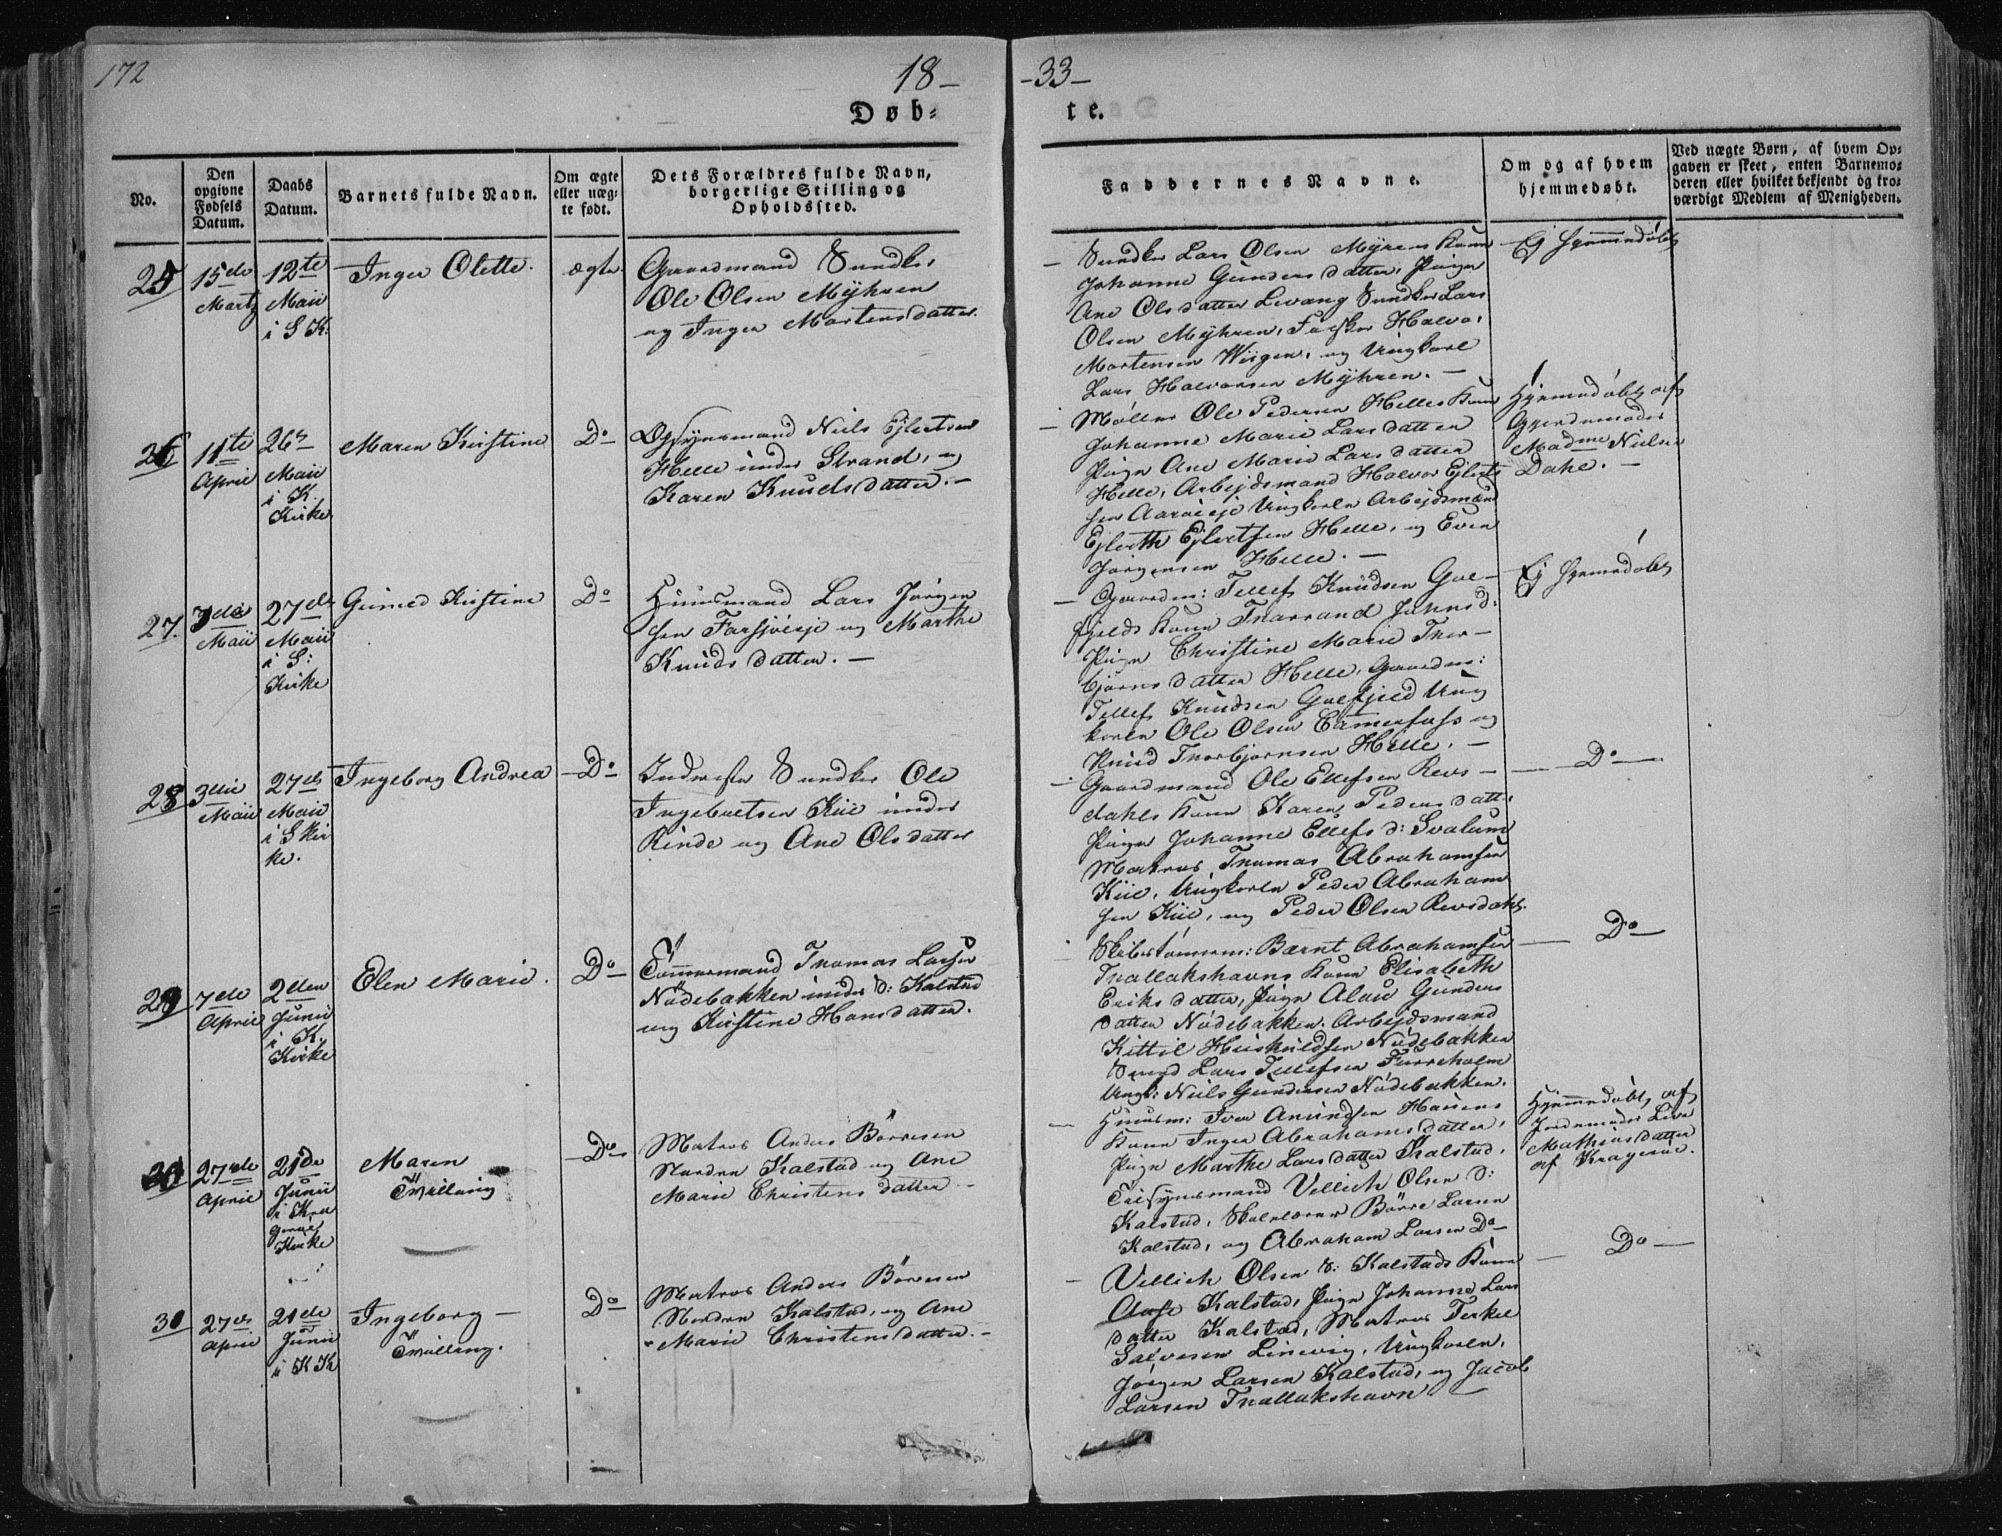 172
18-
-33-
Døb-
te.
No.
Den opgivne Fødsels Datum.
Daabs Datum.
Barnets fulde Navn.
Om ægte eller uægte født.
Dets Forældres fulde Navn, borgerlige Stilling og Opholdssted.
Faddernes Navne.
Om og af hvem hjemmedøbt.
Ved uægte Børn, af hvem Opgaven er skeet, enten Barnemoderen eller hvilket bekjendt og troværdigt Medlem af Menigheden.
25
15de Martz
12te Maii i S K.
Inger Olette.
ægte
Gaardmand
Ole Olsen Mÿhren
og Inger Mortensdatter.
Lars Olsen Myrens Kone
Johanne Gundersdatter, Pige
Ane Olsdatter Levang Lars
Olsen Mÿhren, Halvor
Mortensen Wiigen, og Ungkarl
Lars Halvorsen Mÿhren. –
Ej hjemmedøbt
26
11te April
26de Maii i K. Kirke
Maren Kirstine
Do
Opsynsmand Niels Ejlertsen
Helle under Strand, og
Karen Knudsdatter. –
Møller Ole Pedersen Helles Kone
Johanne Marie Larsdatter
Pige Ane Marie Larsdatter
Helle, Arbejdsmand Halvor Ejlert-
sen Ungkarle Arbejdsmænd
Ejlerth Ejlertsen Helle, og Even
Jørgensen Helle. –
Hjemmedøbt af
Gjordemoder
Madme Nielse
Dahl. –
27.
3die Maii
27de Maii i S: Kirke
Gunild Kirstine
Do
Huusmand Lars Jørgen-
sen Farsjøeje og Marthe
Knudsdatter. –
Gaardm: Tellef Knudsen Gol-
fjelds Kone Thorrand Johnsd:
Pige Christine Marie Thor-
bjørnsdatter Helle, Gaardm:
Tellef Knudsen Golfjeld Ung
karle Ole Olsen og
Knud Thorbjørnsen Helle. –
Ej hjemmedøbt
28
3die Maii
27de Maii i S Kirke.
Ingeborg Andrea
Do
Ole
Ingebretsen Kiil under
Rinde og Ane Olsdatter
Gaardmand Ole Ellefsen Revs-
dahls Kone Karen Pedersdatt:
Pige Johanne Ellefsd: Svalund
Matros Thomas Abrahamsen
Kiil, Ungkarle Peder Abraham
sen Kiil, og Peder Olsen Revsdahl.
Do
29
7de April
2den Junii i K. Kirke
Elen Marie.
Do
Tømmermand Thomas Larsen
Nødebakken under d: Kalstad
og Kirstine Hansdatter.
Skibstømmerm: Bærnt Abrahamsen
Thallakshavns Kone Elisabeth
Eriksdatter, Pige Gunders
datter Nødebakken. Arbejdsmand
Kittil Nødebakken
Lars Tellefsen Furreholm
Ungk: Niels Gundersen Nødebakken.
Do
30
27de April
21de Junii i Kragerøe Kirke
Maren
Tvilling
Do
Matros Anders Børresen
Nordre Kalstad og Ane
Marie Christensdatter –
Huusm: Iver Amundsen Havens
Kone Inger Abrahamsdatter,
Pige Marthe Larsdatter Kalstad,
Tilsynsmand Vellich Olsen d:
Kalstad, Skolelærer Børre Larsen
Kalstad, og Abraham Larsen Do
Hjemmedøbt af
Jordemoder Live
Mathiasdatter
af Kragerøe.
31
27de April
21de Junii i K K
Ingeborg –
Tvilling.
Do
Matros Anders Børresen
Nordre Kalstad, og Ane
Marie Christensdatter. –
Vellich Olsen d: Kalstads Kone
Aase Kalstad, Pige Johanne Lars
datter Kalstad, Matros Terkel
Salvesen Linevig, Ungkarle,
Jørgen Larsen Kalstad, og Jacob
Larsen Thallakshavn
Do